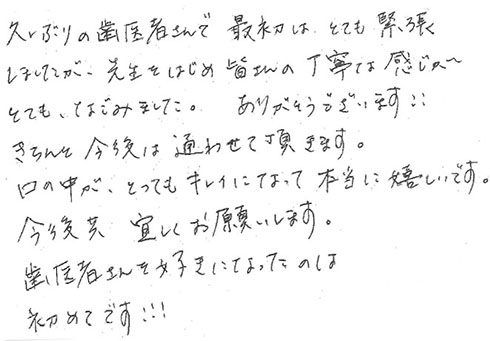 久しぶりの歯医者さんで 最初は とても 緊張
しましたが、先生をはじめ 皆さんの 丁寧な 感じが〜
とても、なごみました。 ありがとうございます!!
きちんと 今後は 通わせて頂きます。
口の中が、とってもキレイになって 本当に 嬉しいです。
今後共 宜しくお願いします。
歯医者さんを好きになったのは
初めてです!!!